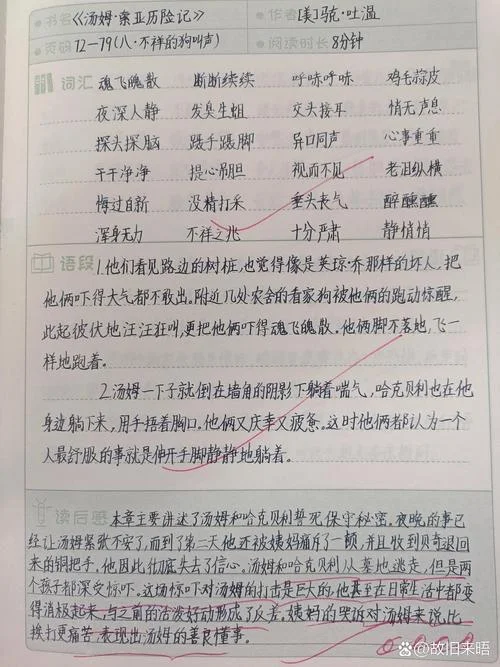 书名《汤姆·索亚历险记》 作者[美]马克·吐温
页码72-79(八·不祥的狗叫声) 阅读时长8分钟
词汇 魂飞魄散 断断续续 呼哧呼哧 鸡毛蒜皮
夜深人静 发臭生蛆 交头接耳 悄无声息
探头探脑 蹑手蹑脚 异口同声 心事重重
干干净净 提心吊胆 视而不见 老泪纵横
悔过自新 没精打采 垂头丧气 醉醺醺
浑身无力 不祥之兆 十分严肃 静悄悄
语段 1.他们看见路边的树桩,也觉得像是英琼·乔那样的坏人,把
他俩吓得大气都不敢出。附近几处农舍的看家狗被他俩的跑动惊醒,
此起彼伏地汪汪狂叫,更把他俩吓得魂飞魄散。他俩脚不落地,飞一
样地跑着。
2.汤姆一下子就倒在墙角的阴影下躺着喘气,哈克贝利也在他
身边躺下来,用手捂着胸口。他俩又庆幸又疲惫。这时他俩都认为一个
人最舒服的事就是伸开手脚静静地躺着。
读后感 本章主要讲述了汤姆和哈克贝利誓死保守秘密。夜晚的事已
经让汤姆紧张不安了,而到了第二天他还被姨妈痛斥了一顿,并且收到贝奇退回
来的铜把手,他因此彻底失去了信心。汤姆和哈克贝利从墓地逃走,但是两
个孩子都深受惊吓。这场惊吓对汤姆的打击是巨大的,他甚至在日常生活中都变
得消极起来,与之前的活泼好动形成了反差。姨妈的哭诉对汤姆来说比
挨打更痛苦,表现出汤姆的善良懂事。
头条 @故旧来晤